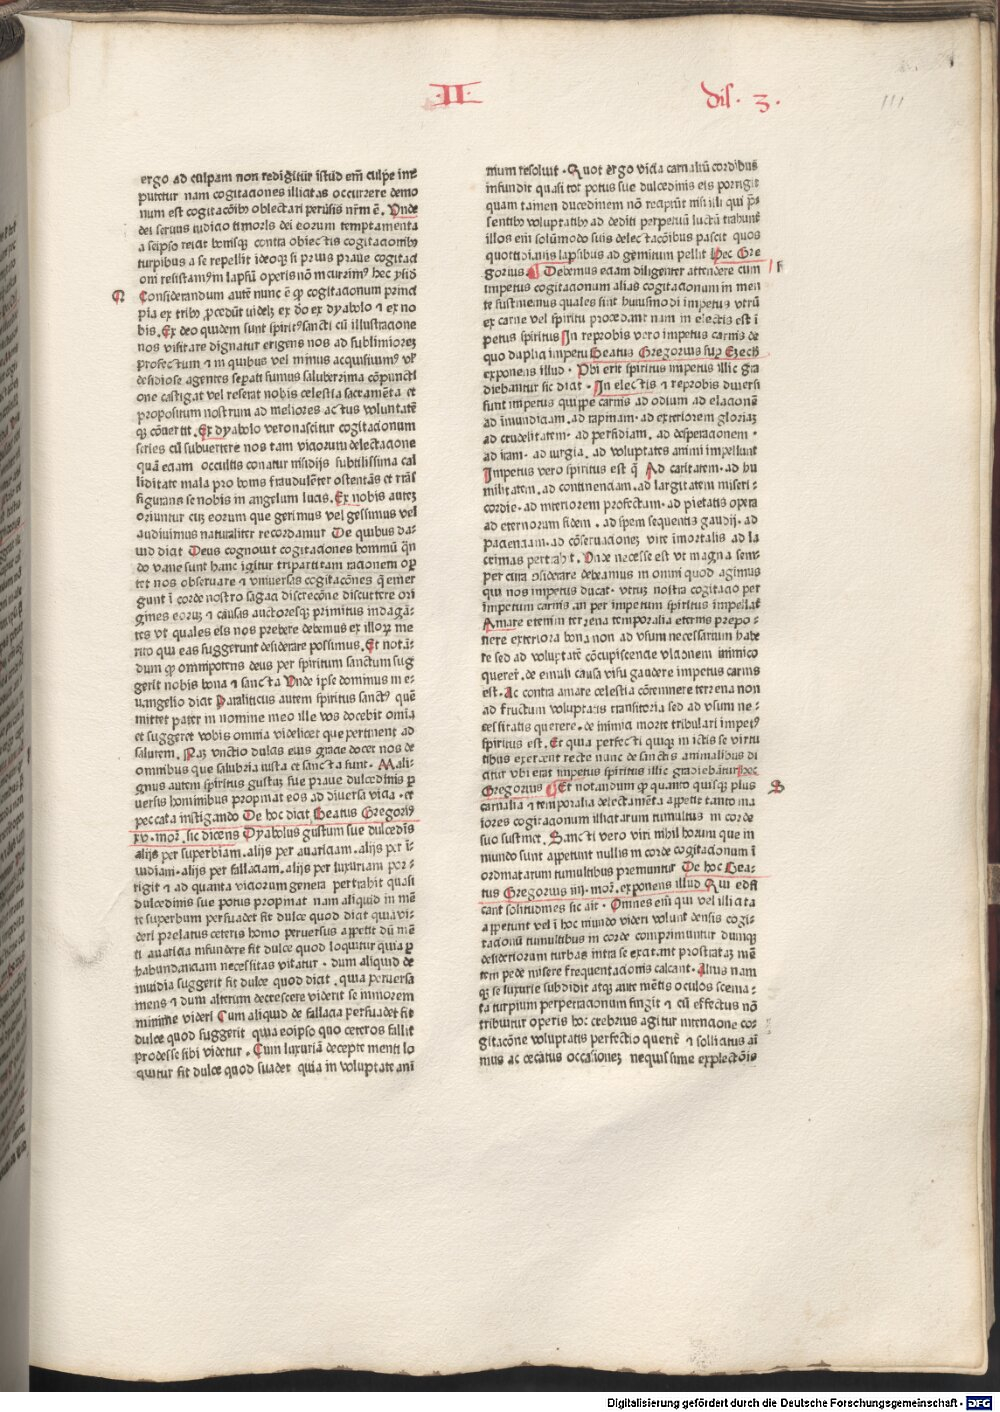 ·II·
dis. 3.
111
ergo ad culpam non redigitur istud em̄ culpe im
putetur nam cogitaciones illicitas occurrere demo
num est cogitacōibꝰ oblectari peruersis nr̄m ē. Vnde
dei seruus iudicio timoris dei eorum temptamenta
a seipso reiciat bonisqꝫ contra obiectis cogitacionibꝰ
turpibus a se repellit ideoqꝫ si prius praue cogitaci
oni resistamꝰ in lapsū operis nō incurrimꝰ hec ysid
Q
Considerandum autē nunc ē ꝙ cogitacionum princi
pia ex tribꝰ ꝓcedūt videlꝫ ex do ex dyabolo ⁊ ex no
bis. Ex deo quidem sunt spiritꝰsancti cū illustracione
nos visitare dignatur erigens nos ad sublimiorē
profectum ⁊ in quibus vel minus acquisiuimꝰ vel
desidiose agentes separati sumus saluberrima cōpuncti
one castigat vel reserat nobis celestia sacramēta et
propositum nostrum ad meliores actus voluntatē
qꝫ cōuertit. Ex dyabolo vero nascitur cogitacionum
series cū subuertere nos tam viciorum delectacione
quā eciam occultis conatur insidijs subtilissima cal
liditate mala pro bonis fraudulēter ostentās et trās
figurans se nobis in angelum lucis. Ex nobis auteꝫ
oriuntur cuꝫ eorum que gerimus vel gessimus vel
audiuimus naturaliter recordamur De quibus da-
uid dicit Deus cognouit cogitaciones hominū qm̄
do vane sunt hanc igitur tripartitam racionem opor
tet nos obseruare ⁊ vniuersis cogitacōnes q̄ emer
gunt ī corde nostro sagaci discrecōne discuttere ori
gines eorū ⁊ causas auctoresqꝫ primitus indagā-
tes vt quales eis nos prebere debeamus ex illoꝝ me
rito qui eas suggerunt considerare possimus. Et notā-
dum ꝙ omnipotens deus per spiritum sanctum sug
gerit nobis bona ⁊ sancta Vnde ipse dominus in e-
uangelio dicit Paraliticus autem spiritus sanctꝰ quē
mittet pater in nomine meo ille vos docebit omīa
et suggeret vobis omnia videlicet que pertinent ad
salutem. Naꝫ vnctio dulcis eius gracie docet nos de
omnibus que salubria iusta et sancta sunt. Mali-
gnus autem spiritus gustuꝫ sue praue dulcedinis p
uersis hominibus propinat eos ad diuersa vicia. et
peccata instigando De hoc dicit Beatus Gregoriꝰ
xv. mor. sic dicens Dyabolus gustum sue dulcedīs
alijs per superbiam. alijs per auariciam. alijs per ī-
uidiam. alijs per fallaciam. alijs per luxuriam por-
rigit ⁊ ad quanta viciorum genera pertrahit quasi
dulcedinis sue potus propinat nam aliquid in mē
te superbum persuadet fit dulce quod dicit quia vi-
deri prelatus ceteris homo peruersus appetit dū mē
ti auaricia infundere fit dulce quod loquitur quia p
habundanciam necessitas vitatur. dum aliquid de
inuidia suggerit fit dulce quod dicit. quia peruersa
mens ⁊ dum alterum decrescere viderit se minorem
minime videri Cum aliquid de fallacia persuadet fit
dulce quod suggerit quia eoipso quo ceteros fallit
prodesse sibi videtur. Cum luxuriā decepte menti lo
quitur fit dulce quod suadet quia in voluptate ani
mum resoluit. Quot ergo vicia carnaliū cordibus
infundit quasi tot potus sue dulcedinis eis porrigit
quam tamen ducedinem nō recipiūt nisi illi qui p̄-
sentibꝰ voluptatibꝰ ad dediti perpetuū luctū trahunt
illos em̄ solūmodo suis delectacōibus pascit quos
quottidianis lapsibus ad gemitum pellit Hec Gre
gorius. Debemus eciam diligenter attendere cum
R
impetus cogitacionum alias cogitacionum in men
te sustinemus quales sint huiusmodi impetꝰ vtrū
ex carne vel spiritu procedant nam in electis est ī
petus spiritus In reprobis vero impetus carnis de
quo duplici impetu Beatus Gregorius suꝑ Ezech
exponens illud. Vbi erit spiritus impetus illic gra
diebantur sic dicit. In electis ⁊ reprobis diuersi
sunt impetus quippe carnis ad odium ad elacionē
ad īmundiciam. ad rapinam. ad exteriorem gloriaꝫ
ad crudelitatem. ad perfidiam. ad desperacionem.
ad iram. ad iurgia. ad voluptates animi impellunt
Impetus vero spiritus est q̄ Ad caritatem. ad hu
militatem. ad continenciam. ad largitatem miseri-
cordie. ad interiorem profectum. ad pietatis opera
ad eternorum fidem. ad spem sequentis gaudij. ad
pacienciam. ad cōseruacionēꝫ vite īmortalis ad la
crimas pertrahit. Vnde necesse est vt magna sem-
per cura ꝯsiderare debeamus in omni quod agimus
qui nos impetus ducat. vtruꝫ nostra cogitacio per
impetum carnis an per impetum spiritus impellat̄
Amare etenim terrena temporalia eternis prepo-
nere exteriora bona non ad vsum necessarium habe
re sed ad voluptatē cōcupiscencie vlcionem inimico
querere. de emuli causa visu gaudere impetus carnis
est. Ac contra amare celestia cōtemnere terrena non
ad fructum voluptatis transitoria sed ad vsum ne-
cessitatis querere. de inimici morte tribulari impetꝰ
spiritus est. Et quia perfecti quiqꝫ in istis se virtu
tibus exercent recte nunc de sanctis animalibus di
citur vbi erat impetus spiritus illic gradiebātur hec
Gregorius Et notandum ꝙ quanto quisqꝫ plus
S
carnalia ⁊ temporalia delectamēta appetit tanto ma
iores cogitacionum illicitarum tumultus in corde
suo sustinet. Sancti vero viri nihil horum que in
mundo sunt appetunt nullis in corde cogitacionum ī
ordinatarum tumultibus premuntur De hoc Bea-
tus Gregorius iiij. mor. exponens illud Qui edifi
cant solitudines sic ait. Omnes em̄ qui vel illicita
appetunt vel ī hoc mundo videri volunt densis cogi-
tacionū tumultibus in corde comprimuntur dumqꝫ
desideriorum turbas intra se excitant prostrataꝫ mē
tem pede misere frequentacionis calcant. Alius nam
qꝫ se luxurie subdidit atqꝫ ante mētis oculos scema-
ta turpium perpetracionum fingit ⁊ cū effectus nō
tribuitur operis hoc crebrius agitur intencione co-
gitacōne voluptatis perfectio querit̄ ⁊ sollicitus ai-
mus ac cecatus occasionēꝫ nequissime explectōis
Digitalisierung gefördert durch die Deutsche Forschungsgemeinschaft - DFG